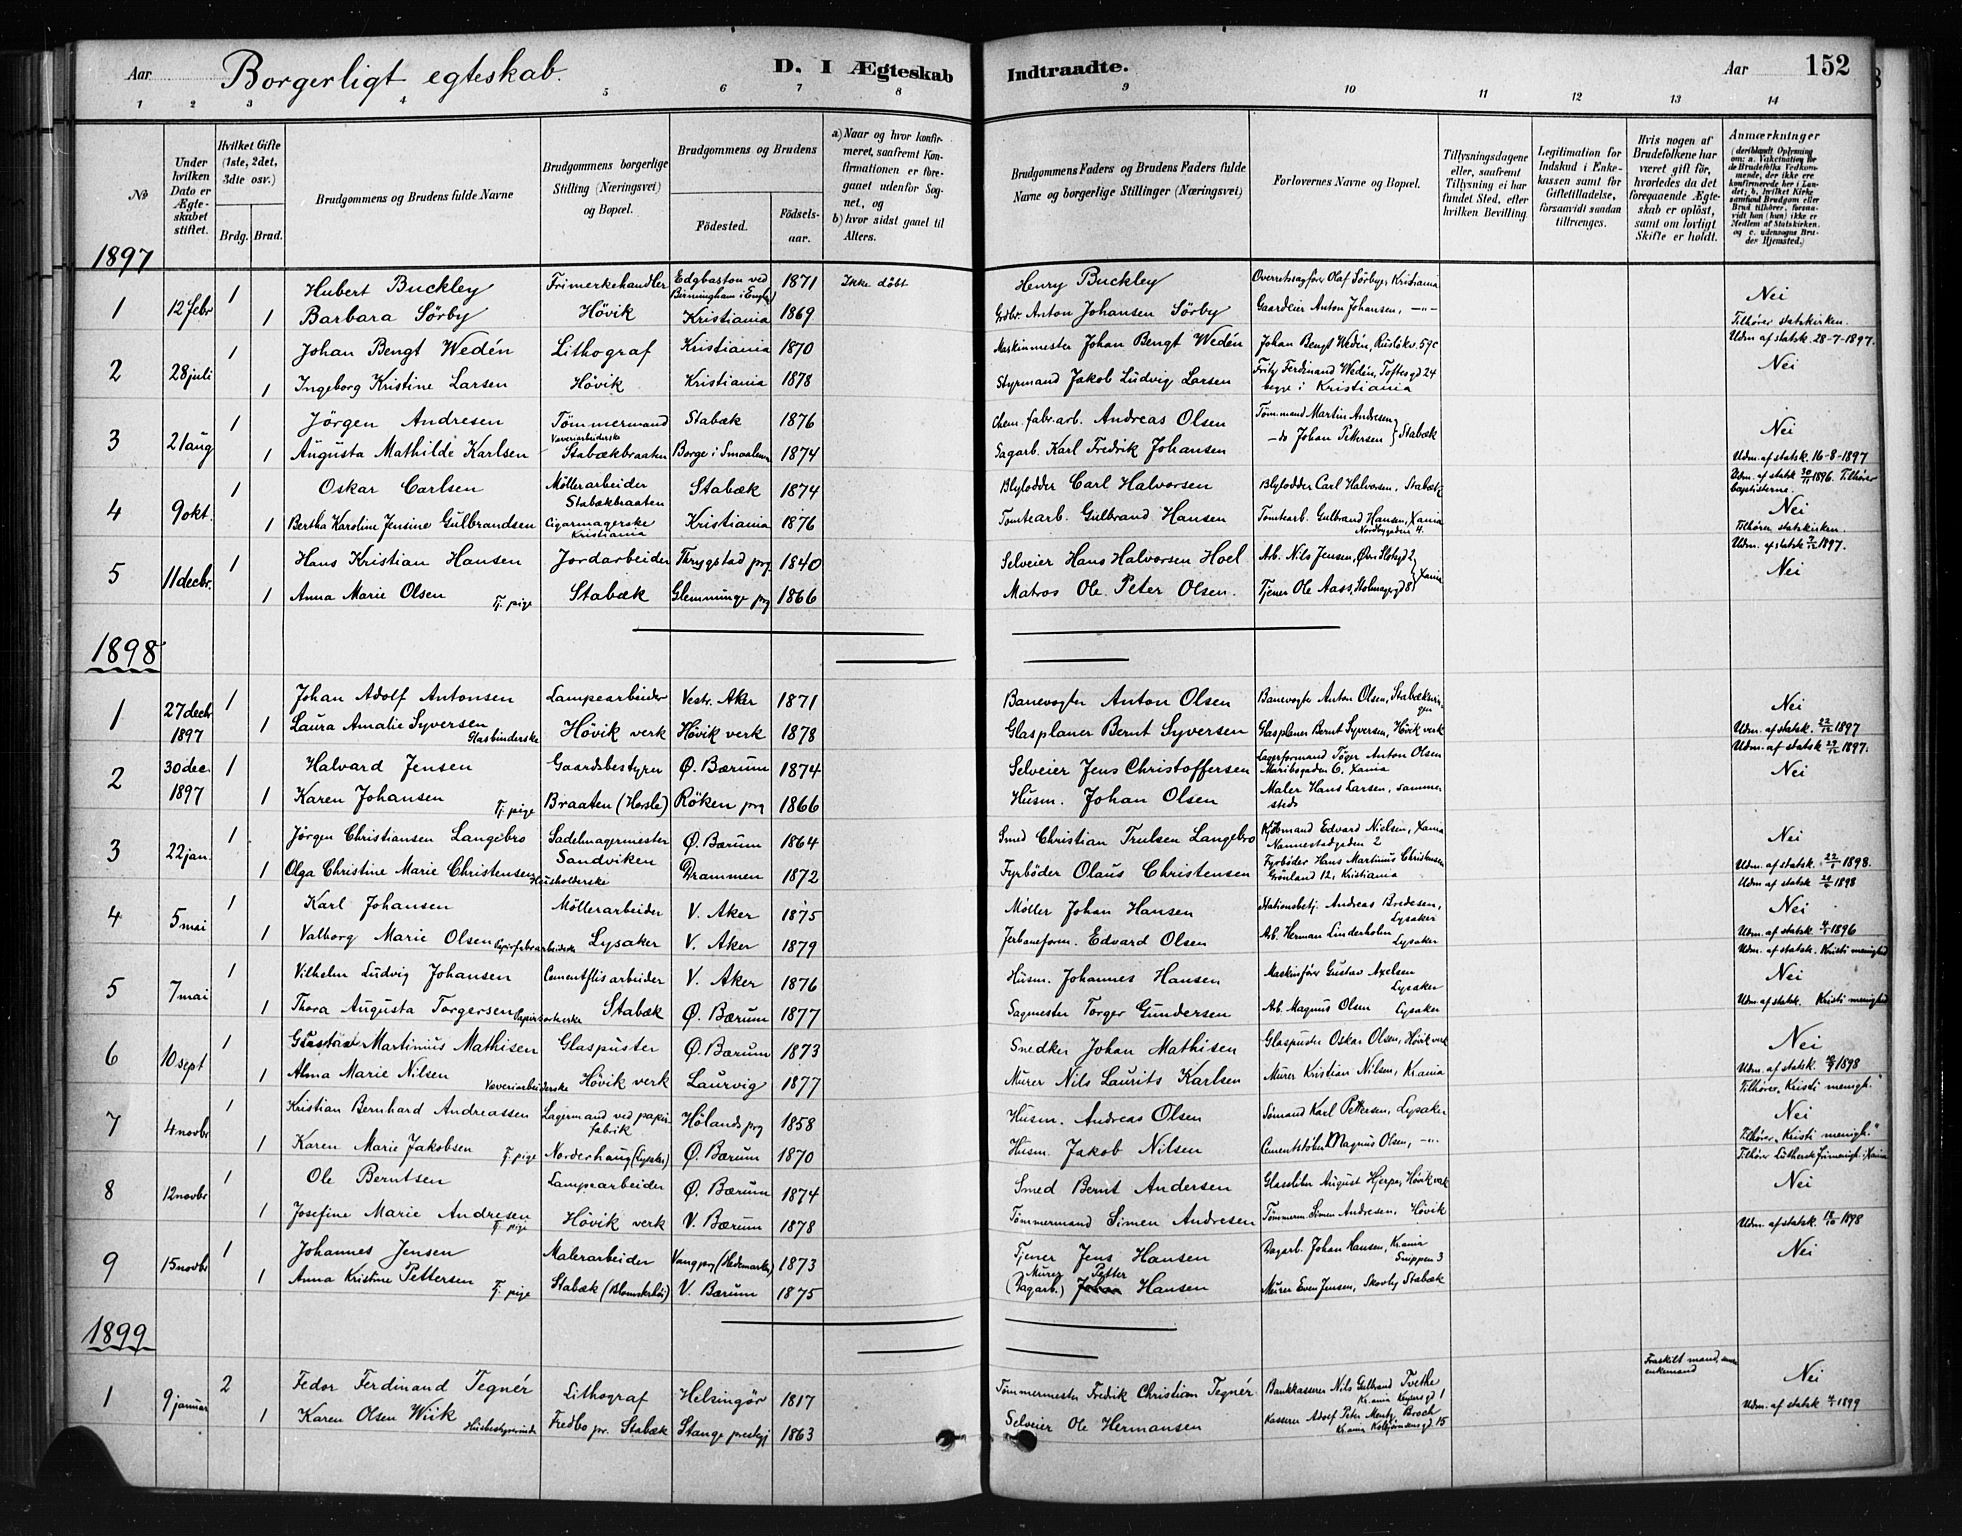 Aar
Borgerligt egteskab.
D. I Ægteskab
Indtraadte.
Aar
152
1 2 3 4 5 6 7 8 9 10 11 12 13 14
№
Under hvilken Dato er Ægteskabet stiftet.
Hvilket Gifte (1ste, 2det, 3die osv.)
Brdg. Brud.
Brudgommens og Brudens fulde Navne
Brudgommens borgerlige Stilling (Næringsvei) og Bopæl.
Brudgommens og Brudens
Fødested.
Fødselsaar.
a) Naar og hvor konfirmeret, saafremt Konfirmationen er foregaaet udenfor Sognet, og
b) hvor sidst gaaet til Alters.
Brudgommens Faders og Brudens Faders fulde Navne og borgerlige Stillinger (Næringsvei)
Forlovernes Navne og Bopæl.
Tillysningsdagene eller, saafremt Tillysning ei har fundet Sted, efter hvilken Bevilling.
Legitimation for Indskud i Enkekassen samt for Giftetilladelse, forsaavidt saadan tiltrænges.
Hvis nogen af Brudefolkene har været gift før, hvorledes da det foregaaende Ægteskab er opløst, samt om lovligt Skifte er holdt.
Anmærkninger (deriblandt Oplysning om: a. Vakcination for de Brudefolks Vedkommende, der ikke ere konfirmerede her i Landet; b. hvilket Kirkesamfund Brudgom eller Brud tilhører, forsaavidt han (hun) ikke er Medlem af Statskirken. og c. udensogns Brudes Hjemsted.)
1897
1 12 febr 1 Hubert Buckley Frimerkehandler Edgbaston ved Birmingham i Engld 1871 Ikke døbt Henry Buckley Overretssagfører Olaf Sörbye, Kristiania Nei
1 Barbara Sörby Hövik Kristiania 1869 Grdbr. Anton Johansen Sörby Gaardeier Anton Johansen, —"— Tilhører statskirken.
2 28 juli 1 Johan Bengt Wedén Lithograf Kristiania 1870 Maskinmester Johan Bengt Wedén Johan Bengt Wedén, 57c Udm. af statsk. 28-7-1897.
1 Ingeborg Kristine Larsen Hövik Kristiania 1878 Styrmand Jakob Ludvig Larsen Fritz Ferdinand Wedén, Toftesgd 24 begge i Kristiania Nei
3 21 aug 1 Jörgen Andresen Tömmermand Stabæk 1876 Chem. fabr. arb. Andreas Olsen Tømmand Martin Andresen Nei
1 Augusta Mathilde Karlsen Væveriarbeiderske Stabækbraaten Borge i Smaalenen 1874 Sagarb. Karl Fredrik Johansen —do Johan Pettersen } Stabæk Udm. af statsk. 16-8-1897
4 9 okt. 1 Oskar Carlsen Möllerarbeider Stabækbraaten Stabæk 1874 Blylodder Carl Halvorsen Blylodder Carl Halvorsen, Stabæk Udm. af statsk 1896. Tilhører baptisterne. Nei
1 Bertha Karoline Jensine Gulbrandsen Cigarmagerske Kristiania Kristiania 1876 Tomtearb. Gulbrand Hansen Tomtearb. Gulbrand Hansen, Xania Nordbygaden 4. Tilhører statskirken.
5 11 decbr. 1 Hans Kristian Hansen Jordarbeider Thrygstad prg. 1840 Selveier Hans Halvorsen Hoel Arb. Nils Jensen, Øvr. Slotsgd 2 Udm. af statsk 1897.
1 Anna Marie Olsen Tj. pige Stabæk Glemminge prg 1866 Matros Ole Peter Olsen. Tjener Ole Aass, Holmagergd 8 } Xania Nei
1898
1 27 decbr 1897 1 Johan Adolf Antonsen Lampearbeider Vestr. Aker 1871 Banevogter Anton Olsen Banevogte Anton Olsen, Nei
1 Laura Amalie Syversen Glasbinderske Hövik verk Hövik verk 1878 Glasplaner Bernt Syversen Glasplaner Bernt Syversen, Hövik verk Udm. af statsk. 22/12 1897
2 30 dec. 1897 1 Halvard Jensen Gaardsbestyrer Ø. Bærum 1874 Selveier Jens Christoffersen Lagerformand Töger Anton Olsen Maribogaden 6, Xania Udm. af statsk 1897. Nei
1 Karen Johansen Tj. pige Braaten (Horsle) Röken prg 1866 Husm. Johan Olsen Maler Hans Larsen, sammesteds
3 22 jan. 1 Jörgen Christiansen Langebro Sadelmagermester Ø. Bærum 1864 Smed Christian Trulsen Langebro Kjøbmand Edvard Nielsen, Xania Nannestadgeden 2 Nei
1 Olga Christine Marie Christensen Husholderske Sandviken Drammen 1872 Fyrbøder Olaus Christensen Fyrbøder Hans Martinius Christensen Grønland 12, Kristiania Udm. af statsk. 22/1 1898.
4 5 mai 1 Karl Johansen Möllerarbeider V. Aker 1875 Møller Johan Hansen Stationsbetj. Andreas Bredesen, Lysaker Udm af statsk 1898 Nei
1 Valborg Marie Olsen Papirfabrarbeiderske Lysaker V. Aker 1879 Jerbaneform. Edvard Olsen Arb. Herman Linderholm Lysaker Udm. af statsk 1896
5 7 mai 1 Vilhelm Ludvig Johansen Cementflisarbeider V. Aker 1876 Husm. Johannes Hansen Maskinfører Gustav Axelsen Lysaker Udm. af statsk. Kristi menighed Nei
1 Thora Augusta Torgersen Papirsorterske Stabæk Ø. Bærum 1877 Sagmester Torger Gundersen Arb. Magnus Olsen Lysaker Udm. af statsk. Kristi menighed
6 10 sept 1 Gustav Martinius Mathisen Glaspuster Ø. Bærum 1873 Snedker Johan Mathisen Glaspuster Oskar Olsen, Hövik verk Nei
1 Alma Marie Nilsen Væveriarbeiderske Hövik verk Laurvig 1877 Murer Nils Laurits Karlsen Murer Kristian Nilsen, Kr.ania Udm. af statsk. 1898
7 4 novbr 1 Kristian Bernhard Andreassen Lagermand ved papirfabrik Hølands prg 1858 Husm. Andreas Olsen Sømand Karl Pettersen, Lysaker Tilhører „Kristi menigh." Nei
1 Karen Marie Jakobsen Tj. pige Norderhaug (Lysaker) Ø. Bærum 1870 Husm. Jakob Nilsen Cementstøber Magnus Olsen, —"— Tilhører „Kristi menigh."
8 12 novbr 1 Ole Berntsen Lampearbeider Ø. Bærum 1874 Smed Bernt Andersen Glassliber August Hjerpe, Hövik verk Tilhører Luthersk frimenigh. i Xania Nei
1 Josefine Marie Andresen Tj. pige Hövik verk V. Bærum 1878 Tømmermand Simen Andresen Tømmerm. Simen Andresen, Hövik Udm. af statsk. 18/10 1898
9 15 novbr 1 Johannes Jensen Malerarbeider Vang prg (Hedemarken) 1873 Tjener Jens Hansen Dagarb. Johan Hansen, Kr.ania Snippen 3 Nei
1 Anna Kristine Pettersen Tj. pige Stabæk V. Bærum 1875 Murer (Dagarb.) Petter Johan Hansen Murer Even Jensen, Skovly Stabæk
1899
1 9 januar 2 Fedor Ferdinand Tegnér Lithograf Helsingör 1817 Tømmermester Fredrik Christian Tegnér Bankkasserer Nils Gulbrand Tvethe Kr.ania 1 Fraskilt mand, enkemand Nei
1 Karen Olsen Wiik Husbestyrerinde Fredbo pr. Stabæk Stange prestgj 1863 Selveier Ole Hermansen Kasserer Adolf Peter Mentz Broch Kr.ania 15 Udm. af statsk 1899